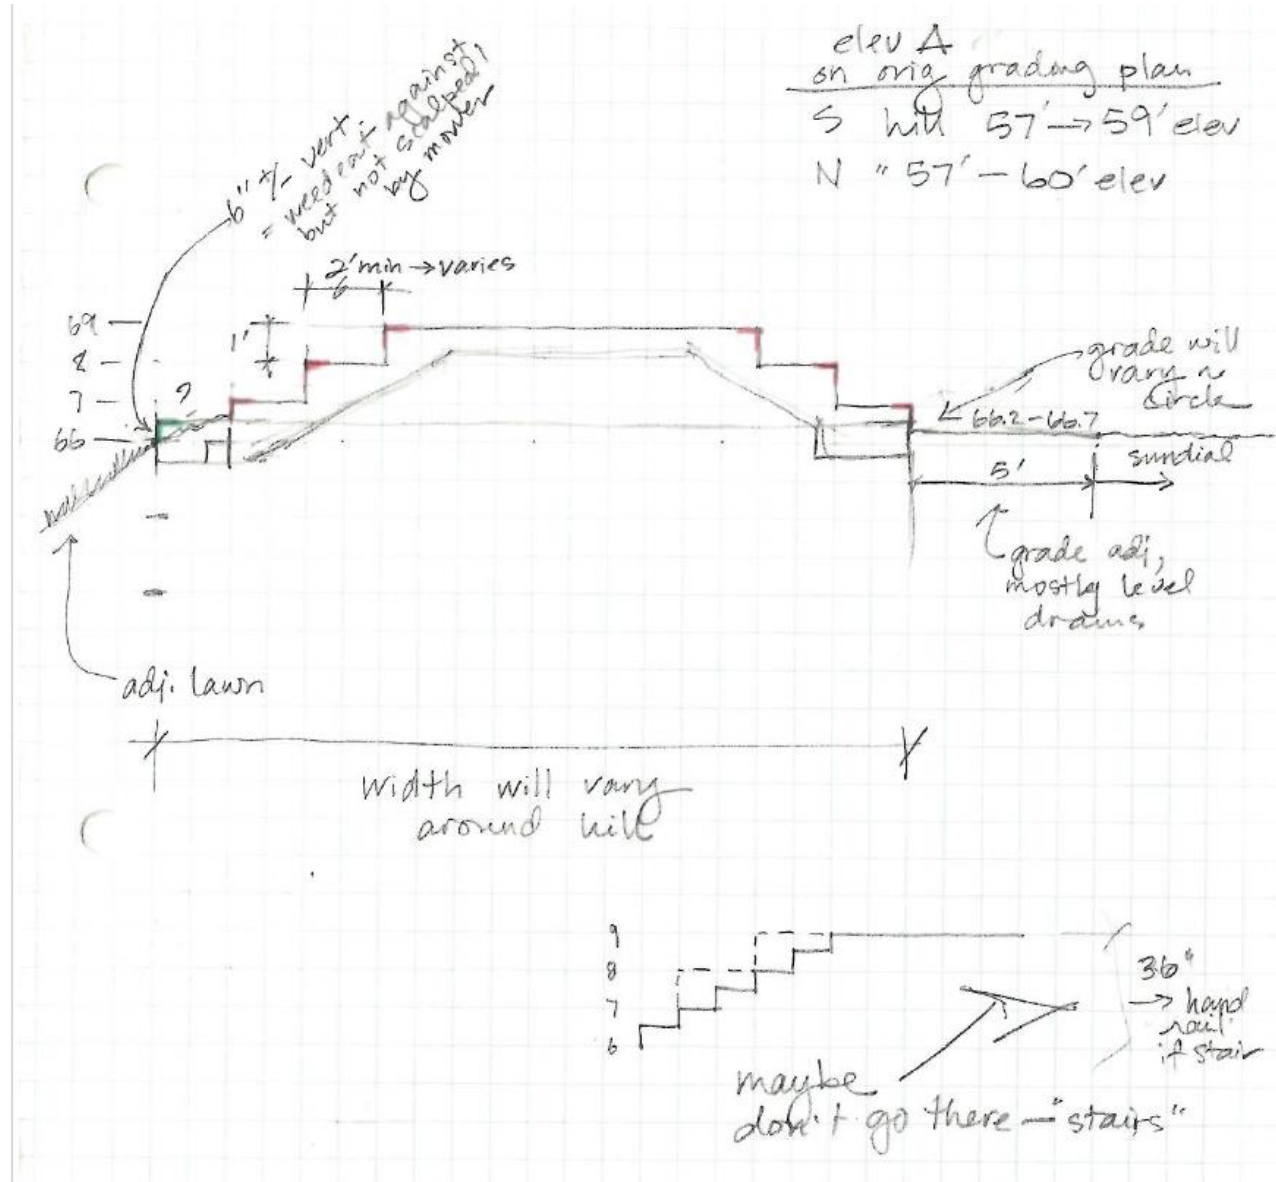 elev A
on orig grading plan
S hill 57' → 59' elev
N " 57' – 60' elev
6" +/- vert.
= weedeat against
but not scalped!
by mower
2' min → varies
6
1'
69
8
7
66
?
grade will
vary ~
circle
66.2 – 66.7
sundial
5'
grade adj,
mostly level
drains
adj. lawn
width will vary
around hill
9
8
7
6
36"
→ hand
rail
if stair
maybe
don't go there – "stairs"